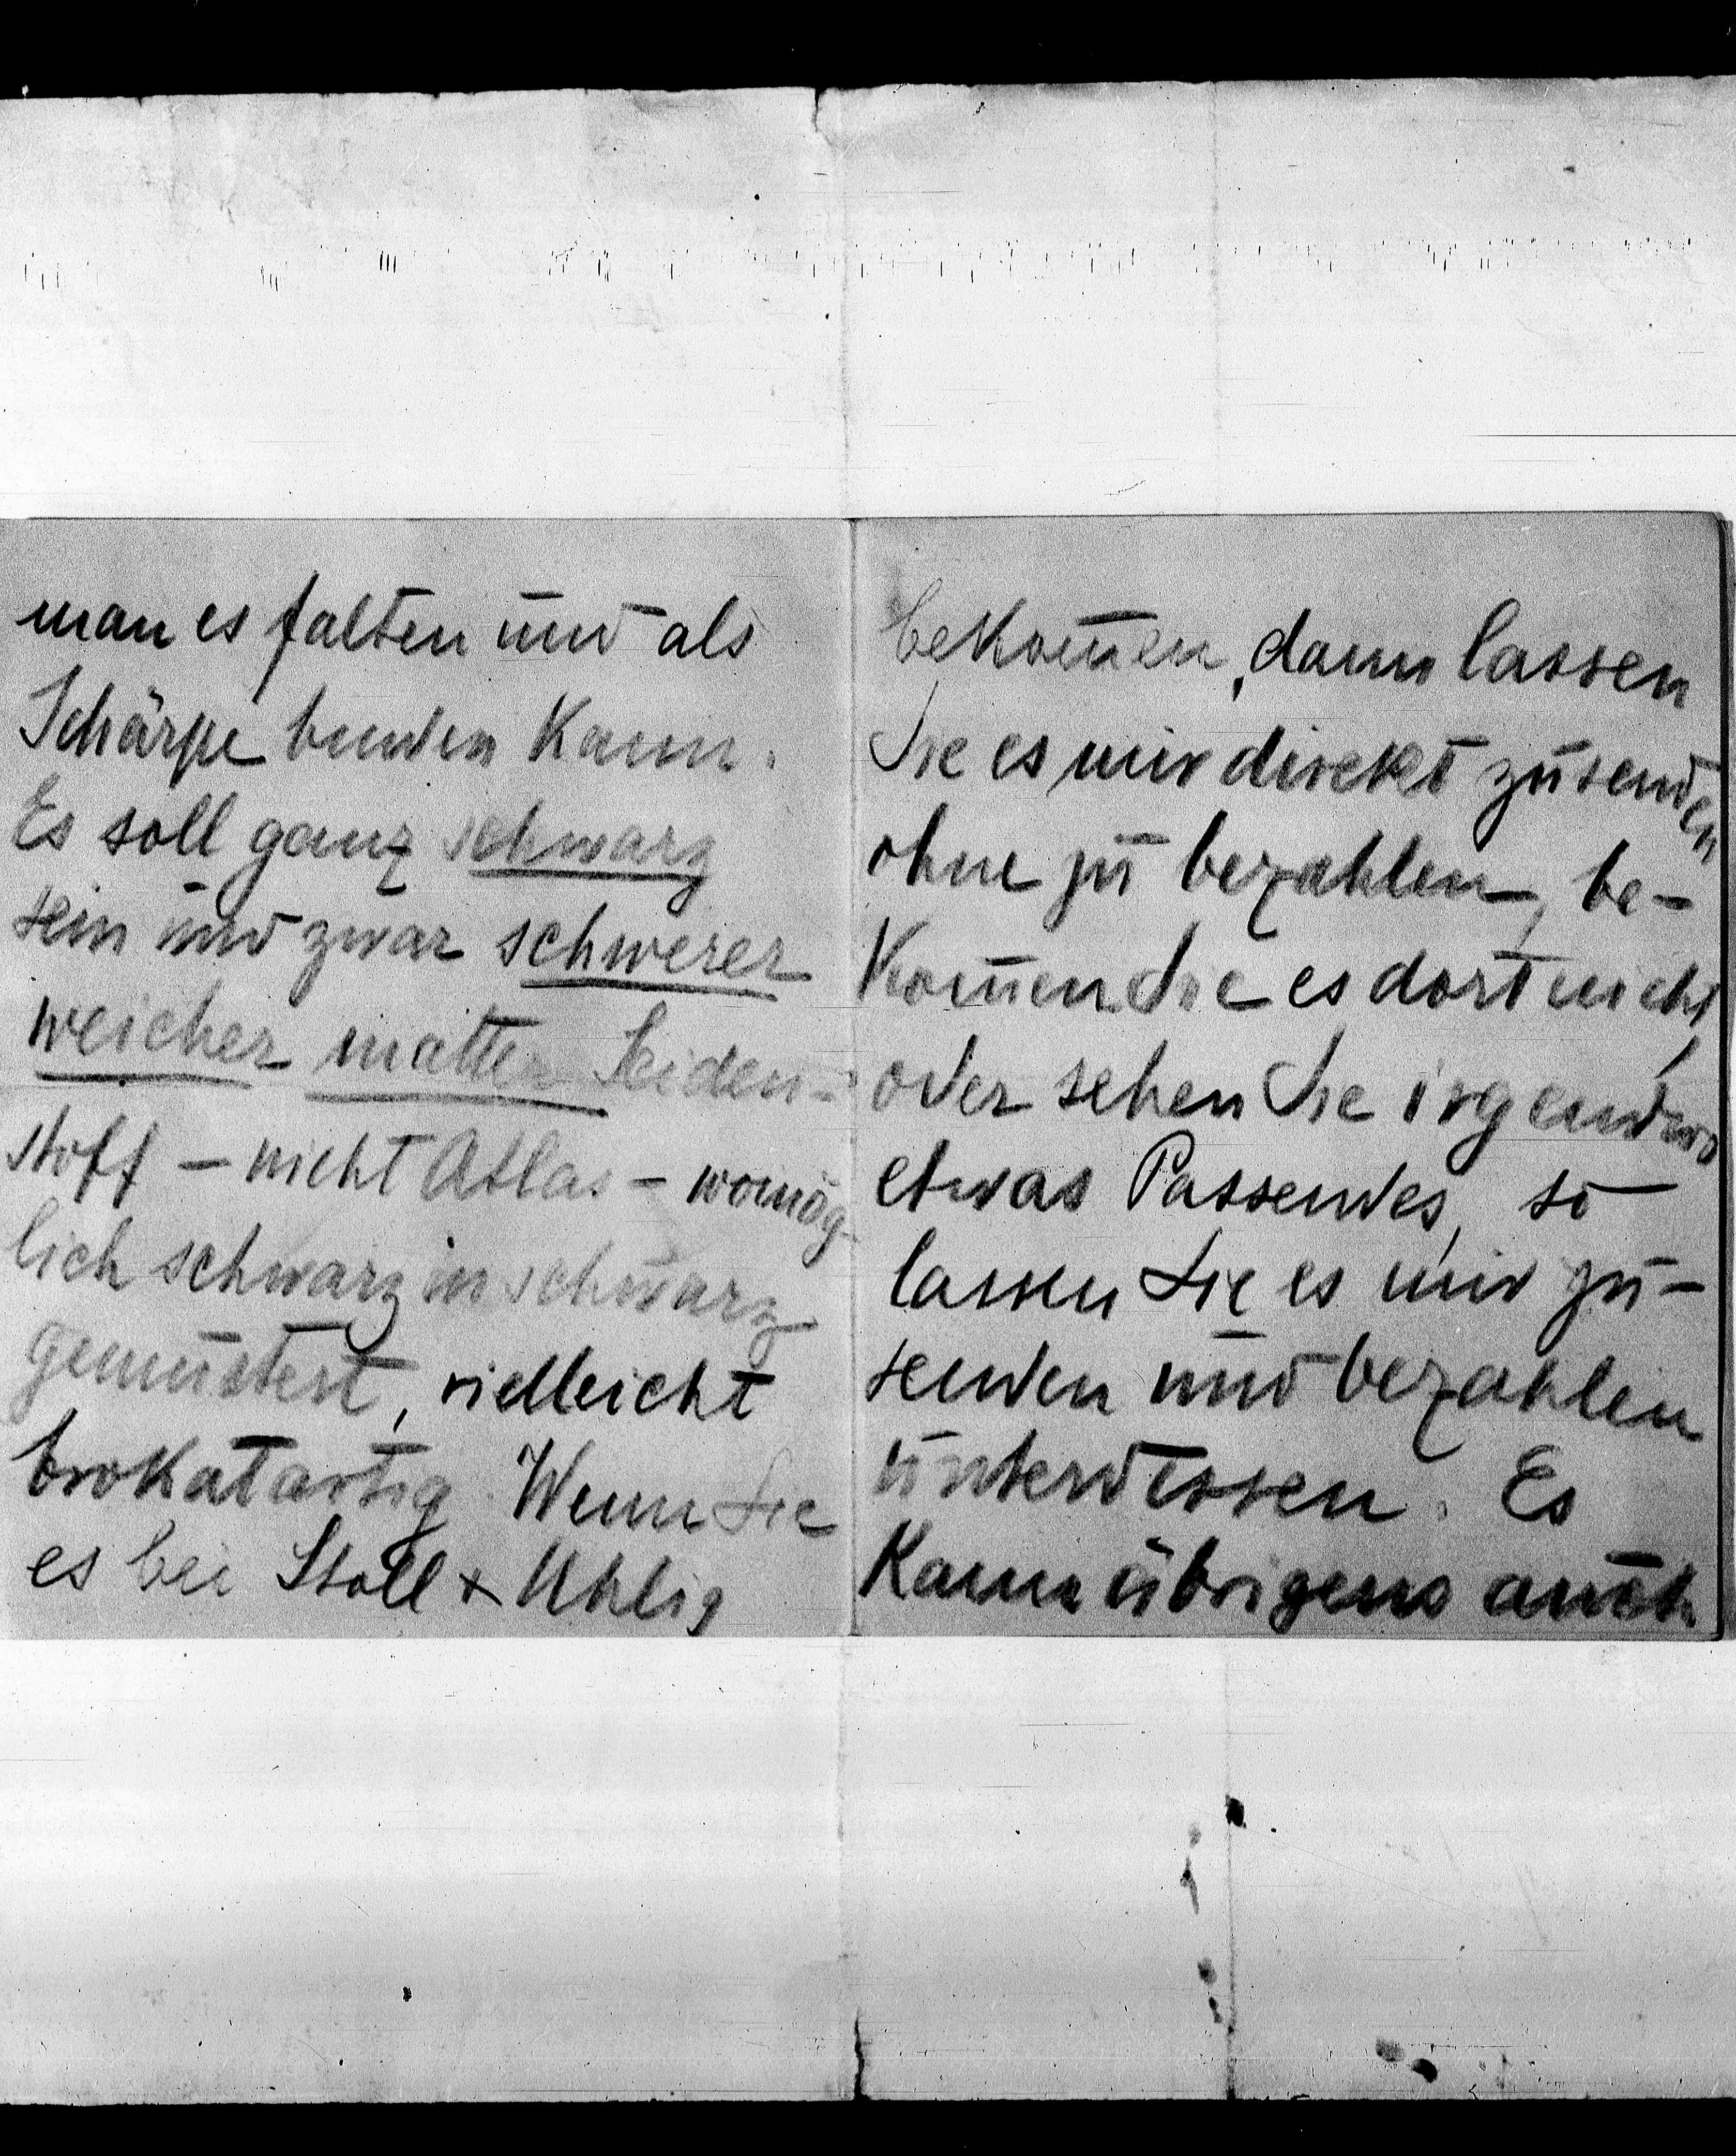 man es falten und als
Schärpe binden kann.
Es soll ganz schwarz
sein und zwar schwerer
weicher matter Seiden-
stoff – nicht Atlas – womög-
lich schwarz in schwarz
gemustert, vielleicht
brokatartig. Wenn Sie
es bei Stoll & Uhlig
bekom̄en, dann lassen
Sie es mir direkt zusenden
ohne zu bezahlen, be-
kom̄en Sie es dort nicht
oder sehen Sie irgendwo
etwas Passendes, so
lassen Sie es mir zu-
senden und bezahlen
unterdessen. Es
kann übrigens auch